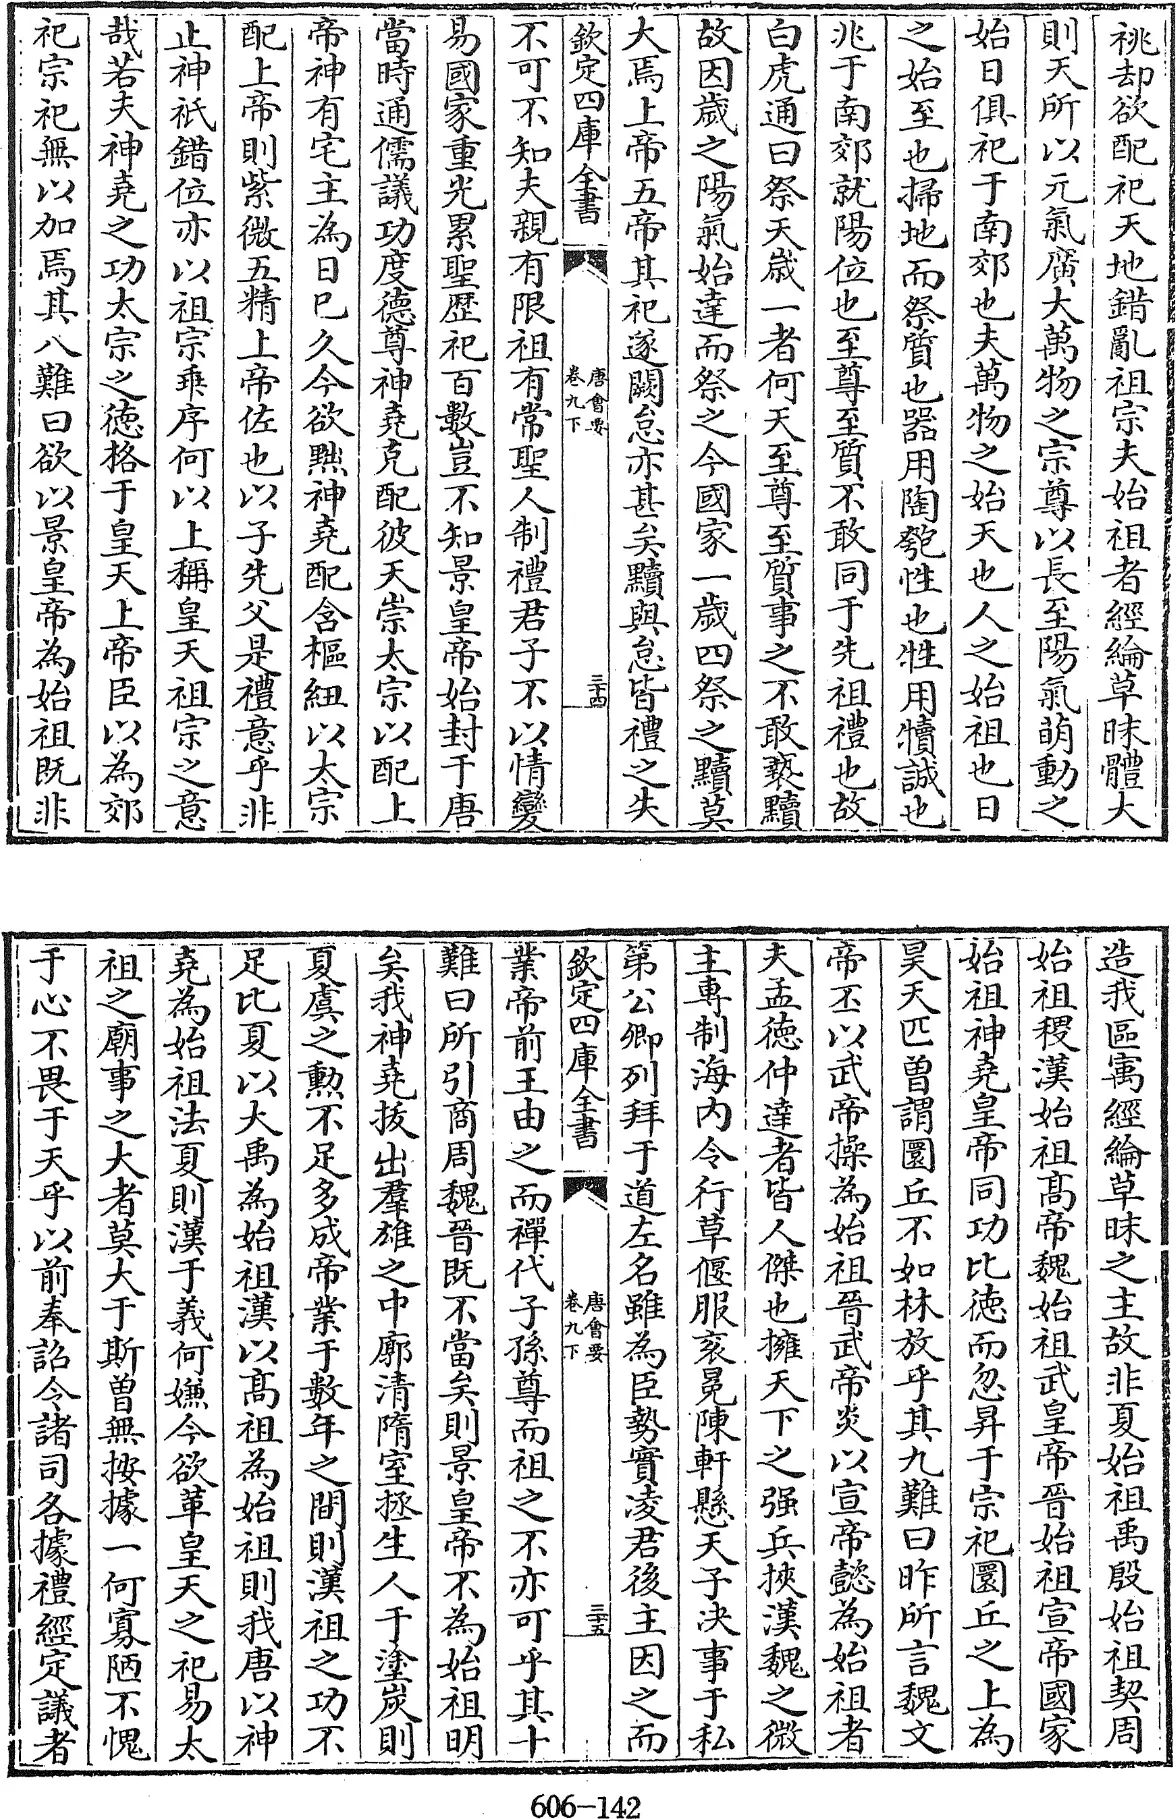 祧却欲配祀天地錯亂祖宗夫始祖者經綸草昧體大
則天所以元氣廣大萬物之宗尊以長至陽氣萌動之
始日俱祀于南郊也夫萬物之始天也人之始祖也日
之始至也掃地而祭質也器用陶匏性也牲用犢誠也
兆于南郊就陽位也至尊至質不敢同于先祖禮也故
白虎通曰祭天歳一者何天至尊至質事之不敢褻黷
故因歳之陽氣始達而祭之今國家一歳四祭之黷莫
大焉上帝五帝其祀遂闕怠亦甚矣黷與怠皆禮之失
欽定四庫全書
唐會要
卷九下
三十四
不可不知夫親有限祖有常聖人制禮君子不以情變
易國家重光累聖歴祀百數豈不知景皇帝始封于唐
當時通儒議功度德尊神堯克配彼天崇太宗以配上
帝神有宅主為日已久今欲黜神堯配含樞紐以太宗
配上帝則紫微五精上帝佐也以子先父是禮意乎非
止神祇錯位亦以祖宗乖序何以上稱皇天祖宗之意
哉若夫神堯之功太宗之德格于皇天上帝臣以為郊
祀宗祀無以加焉其八難曰欲以景皇帝為始祖既非
造我區寓經綸草昧之主故非夏始祖禹殷始祖契周
始祖稷漢始祖髙帝魏始祖武皇帝晉始祖宣帝國家
始祖神堯皇帝同功比德而忽昇于宗祀圜丘之上為
昊天匹曽謂圜丘不如林放乎其九難曰昨所言魏文
帝丕以武帝操為始祖晉武帝炎以宣帝懿為始祖者
夫孟德仲達者皆人傑也擁天下之强兵挾漢魏之微
主專制海内令行草偃服衮冕陳軒懸天子決事于私
第公卿列拜于道左名雖為臣勢實凌君後主因之而
欽定四庫全書
唐會要
卷九下
三十五
業帝前王由之而禪代子孫尊而祖之不亦可乎其十
難曰所引商周魏晉既不當矣則景皇帝不為始祖明
矣我神堯拔出羣雄之中廓清隋室拯生人于塗炭則
夏虞之勲不足多成帝業于數年之間則漢祖之功不
足比夏以大禹為始祖漢以髙祖為始祖則我唐以神
堯為始祖法夏則漢于義何嫌今欲革皇天之祀易太
祖之廟事之大者莫大于斯曽無按據一何寡陋不愧
于心不畏于天乎以前奉詔令諸司各據禮經定議者
606-142